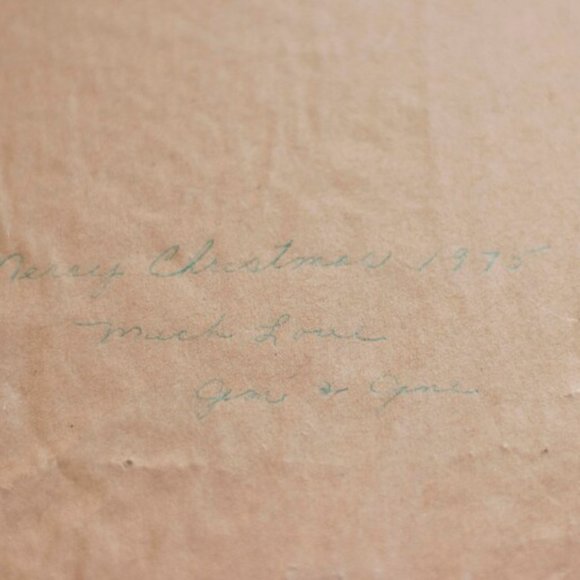 Merry Christmas 1975
Much Love
Jim & Gene